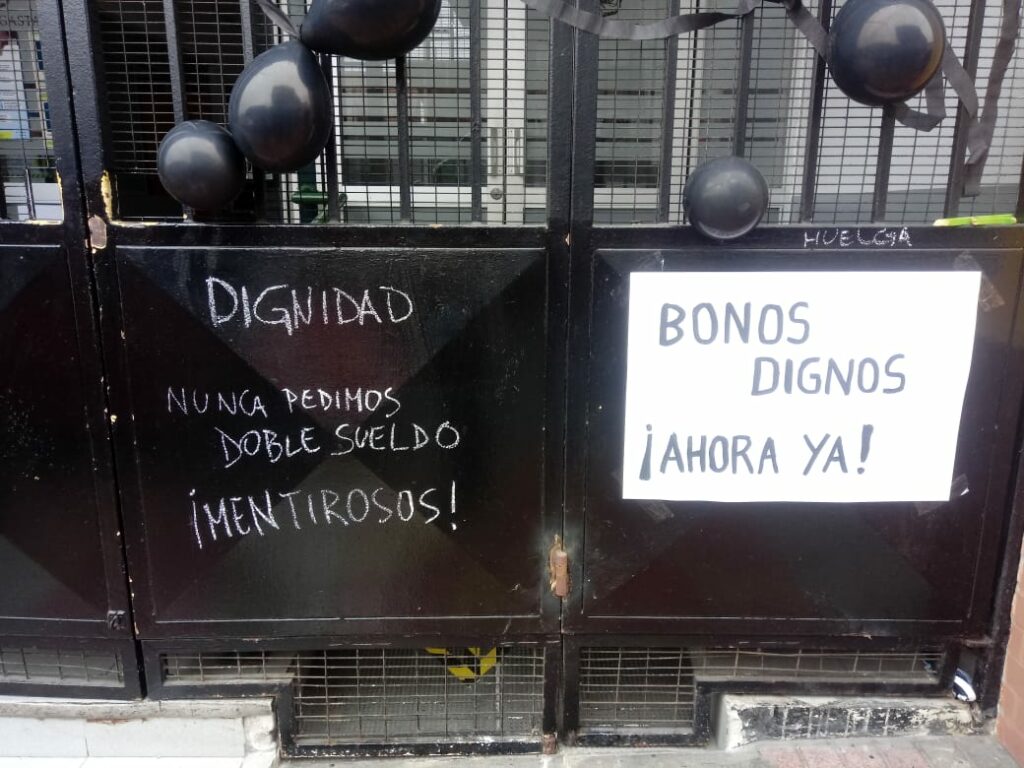 DIGNIDAD
NUNCA PEDIMOS
DOBLE SUELDO
¡MENTIROSOS!
HUELGA
BONOS
DIGNOS
¡AHORA YA!